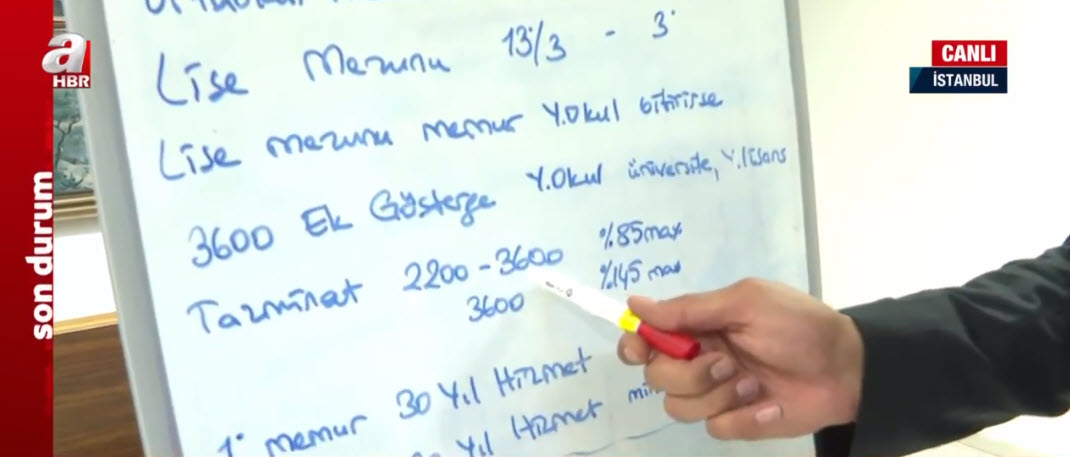 a
HBR
son durum
CANLI
İSTANBUL
Lise Mezunu 13/3 - 3
Lise mezunu memur Y.Okul bitirise
3600 Ek Gösterge Y.Okul üniversite, Y.lisans
Tazminat 2200 - 3600 %85 max
3600 %145 max
1° memur 30 Yıl Hizmet
Yıl Hizmet